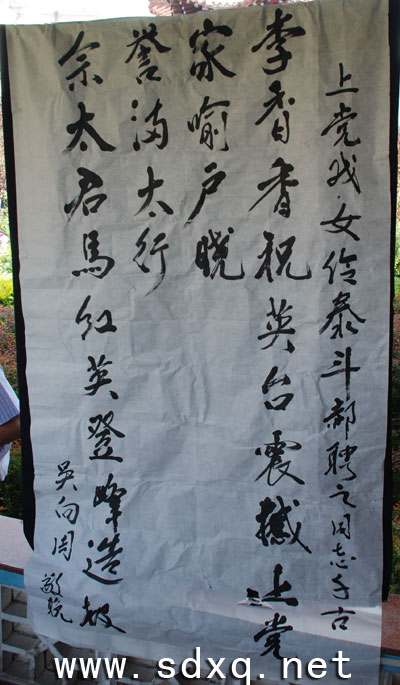 上党戏女伶泰斗郝聘之同志千古
李香香祝英台震撼上党
家喻户晓
誉满太行
佘太君馬红英登峰造极
吳向周 敬挽
www.sdxq.net